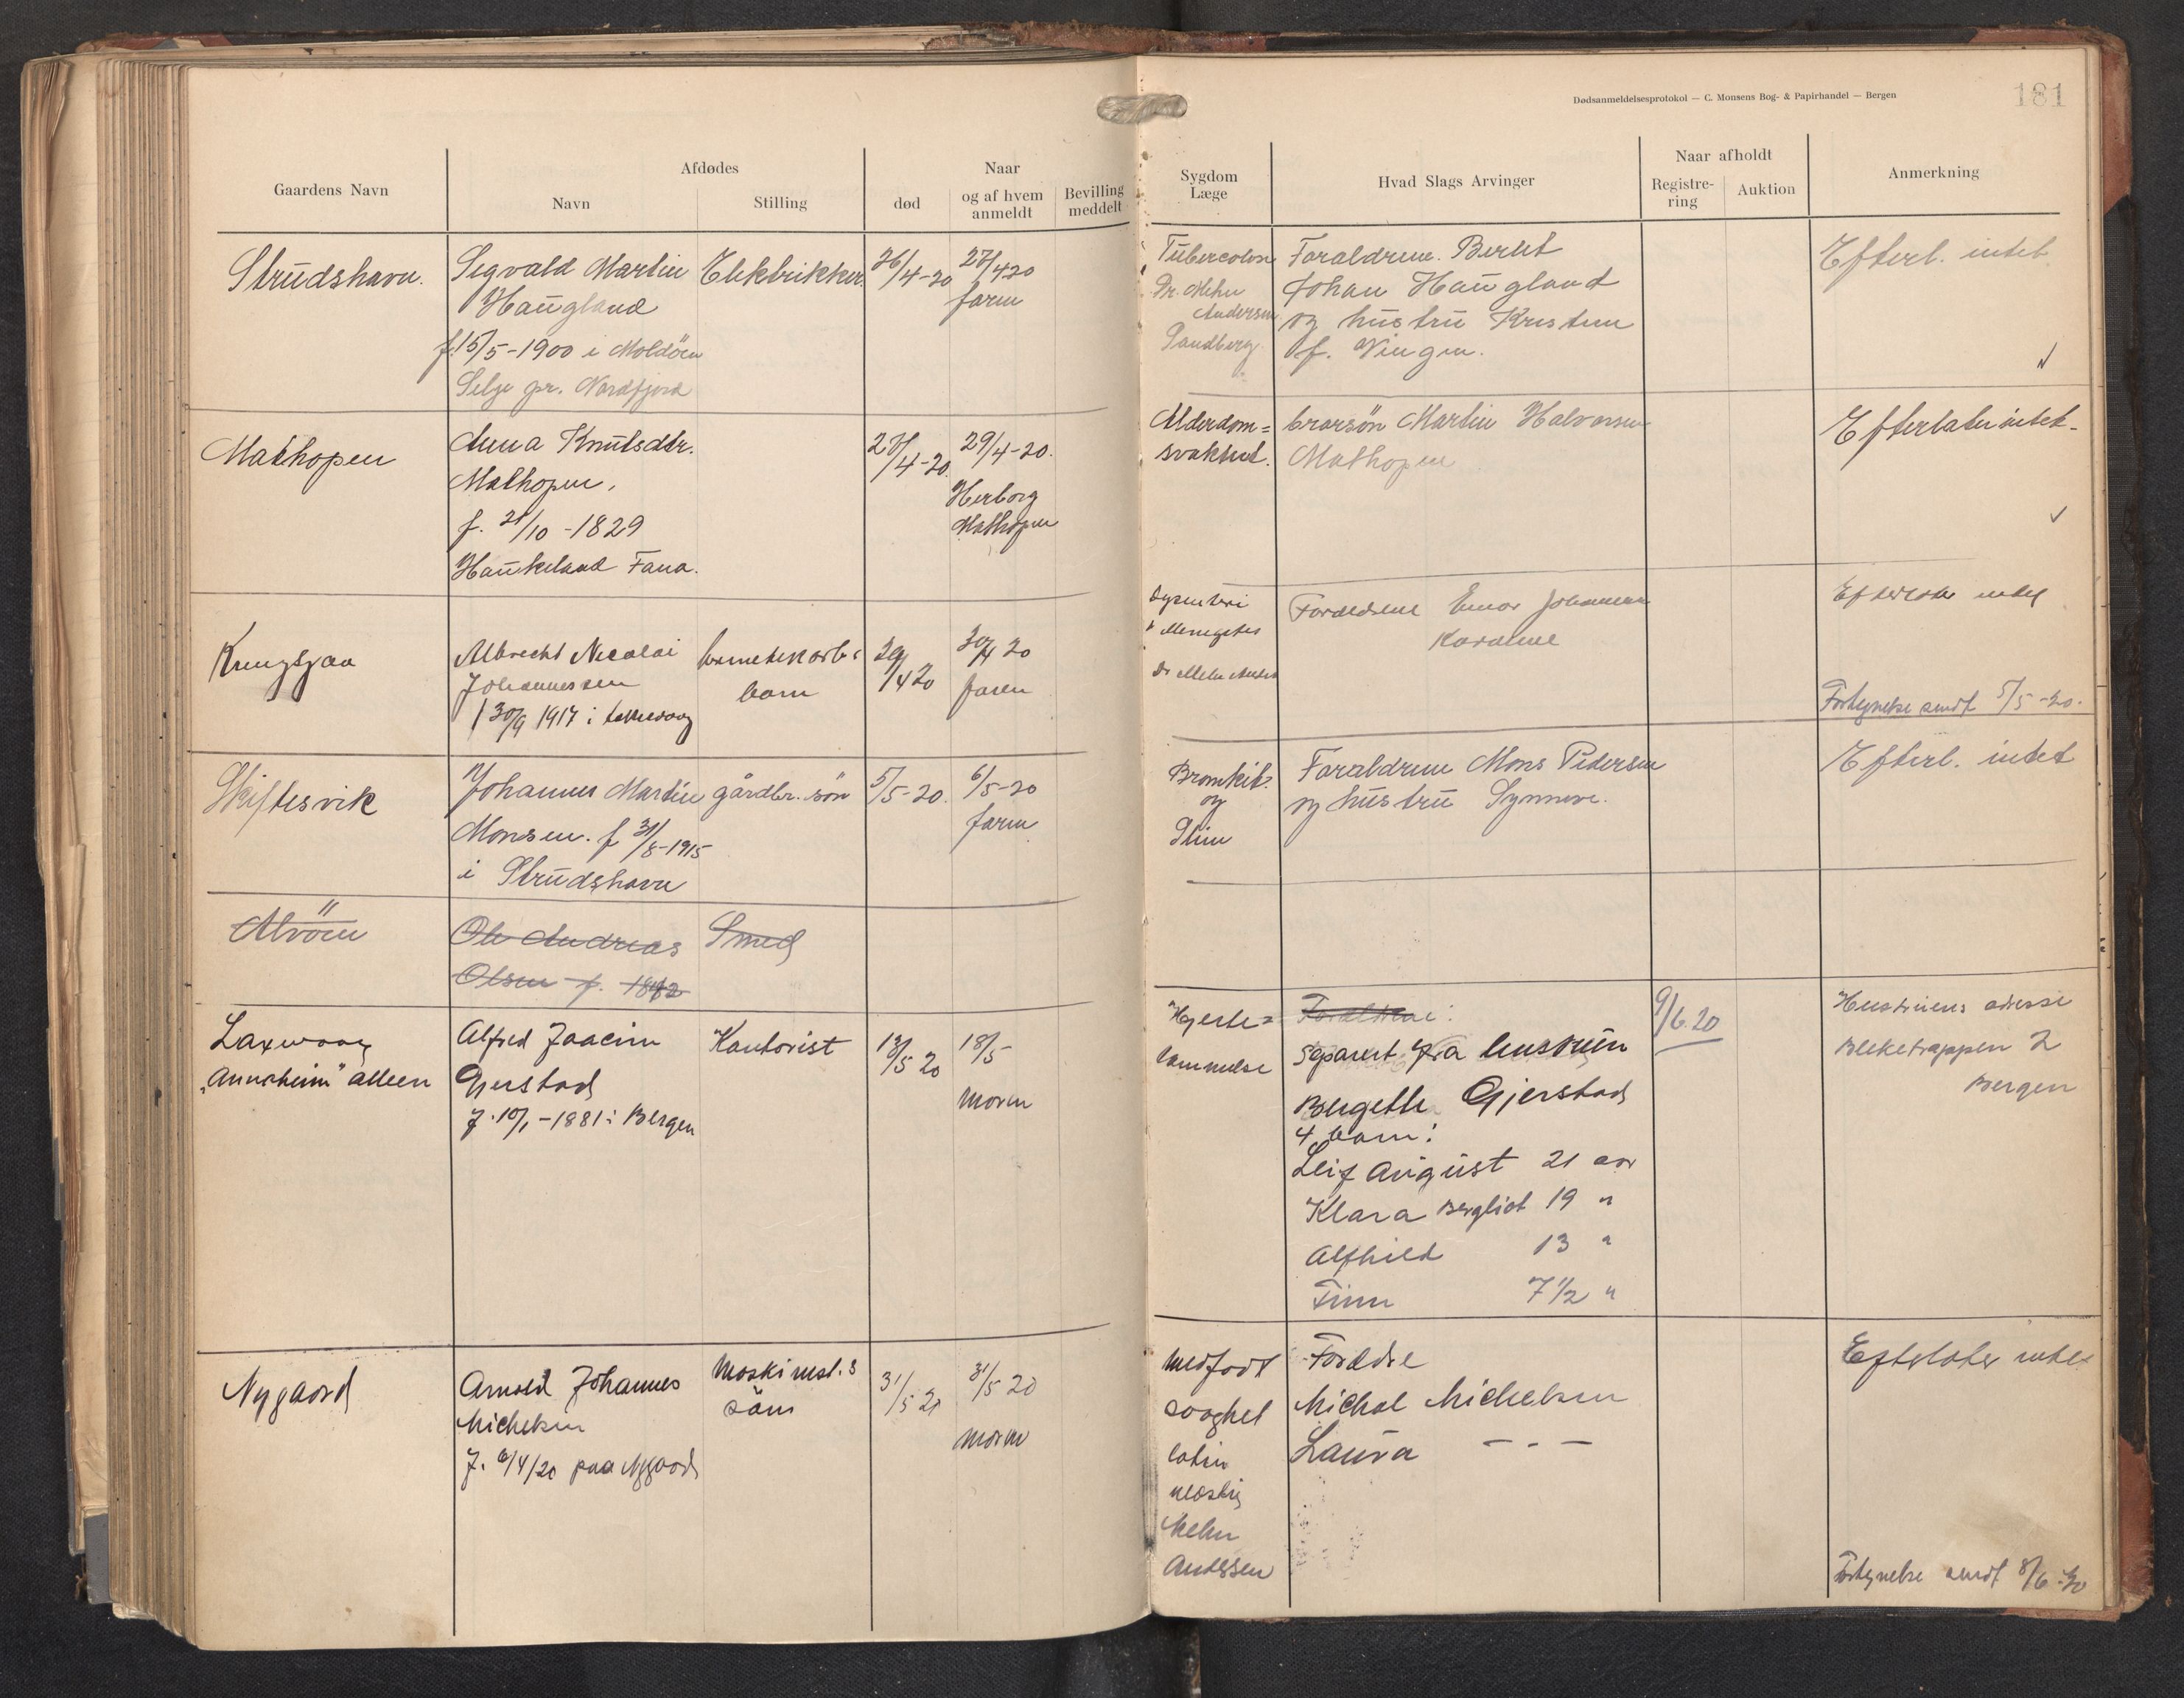 Dødsanmeldelsesprotokol — C. Monsens Bog- & Papirhandel — Bergen
181
Gaardens Navn
Afdødes
Navn
Stilling
Naar
død
og af hvem anmeldt
Bevilling meddelt
Sygdom Læge
Hvad Slags Arvinger
Naar afholdt
Registrering
Auktion
Anmerkning
Strudshavn.
Sigvald Martin
Haugland
f. 15/5-1900 i Moldöen
Selje pr. Nordfjord
Elektrikker.
26/4-20
27/4 20
farm
Tubercolose
Dr. Mehn
Andersen
Sandberg
Foraldrene. Berlit
Johan Haugland
og hustru Kristine
f. Vingen.
Efterl. intet
Mathopen
Anna Knutsdtr.
Mathopen.
f. 21/10-1829
Haukeland Fana.
28/4-20
29/4-20.
Herborg
Mathopen
Alderdom=
svakhet.
brorsön Martin Halvorsen
Mathopen
Efterlater intet-
Kringsjaa
Albrecht Nicolai
Johannessen
f 30/9 1917 i Laksevaag
barn
29/4 20
30/4 20
faren
Dysenteri
Dr Mehn Anders
Foraldrene Einar Johannessen
Karoline
Efterlater intet
Fortegnelse sendt 5/5-20.
Skiftesvik
Johannes Martin
Monsen. f 31/8-1915
i Strudshavn
gårdbr. sön
5/5-20.
6/5-20
farm
Bronkit.
og
Slim
Foraldrene Mons Pedersen
og hustru Synneve.
Efterl. intet
Alvöen
Ole Andreas
Olsen f. 1842
Smed
Laxevaag
"Annaheim" alleen
Alfred Joacim
Gjerstad
f. 10/1-1881 i Bergen
Kontorist
13/5 20
18/5-
moren
Hjerte=
lammelse
Foraldrene:
Separert fra hustruen
Bergette Gjerstad
4 barn:
Leif August 21 aar
Klara Bergliot 19 "
Alfhild 13 "
Finn 7 1/2 "
9/6.20
Hustruens adresse
Blekebrappen 2
Bergen
Nygaard
Arnold Johannes
Michelsen
f. 6/4/20 paa Nygaard
Maskinst. s
sön
31/5 20
31/5 20
moren
medfødt
svaghet
Mehn
Andersen
Forældre
Michal Michelsen
Laura - - -
Efterlater intet
Fortegnelse sendt 8/6-20